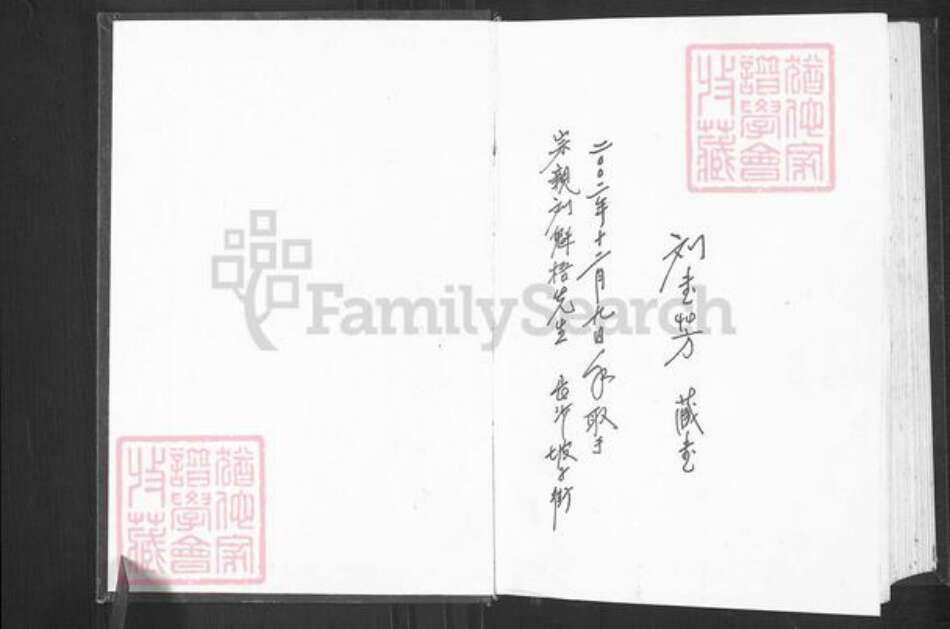 猶他家
譜學會
收藏
刘書芳 藏書
二〇〇二年十二月九日取于
宗親刘魁梧先生 長沙坡子街
FamilySearch
猶他家
譜學會
收藏